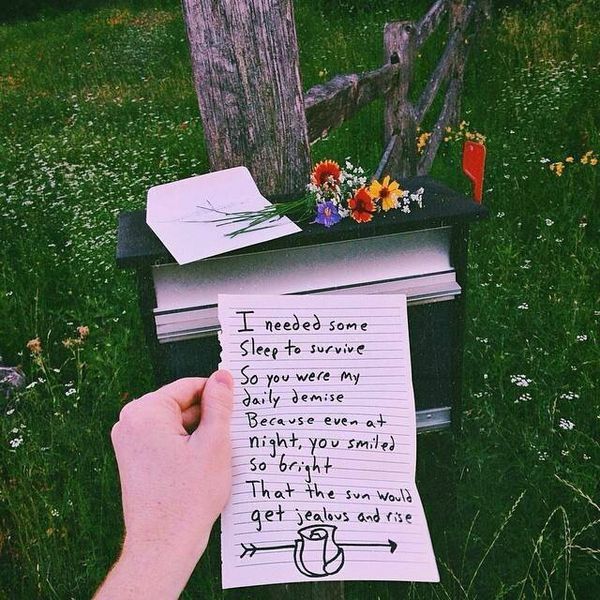 I needed some
Sleep to survive
So you were my
daily demise
Because even at
night, you smiled
so bright
That the sun would
get jealous and rise